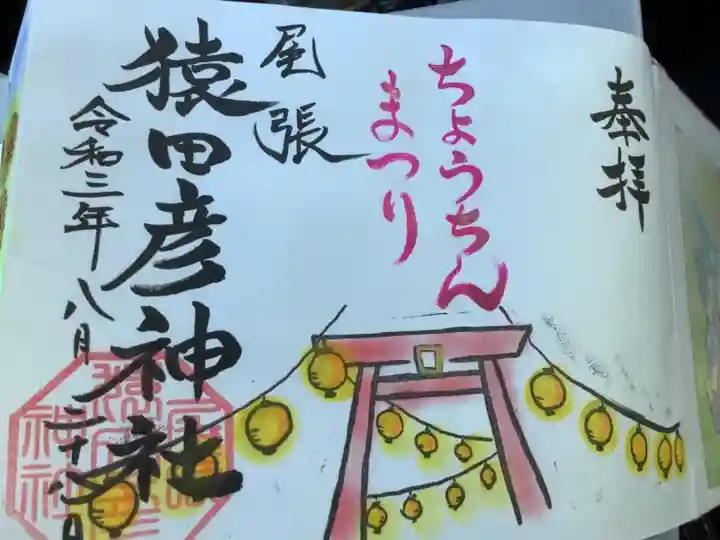 奉拝
ちょうちん
まつり
尾張
猿田彦神社
令和三年八月二十八日